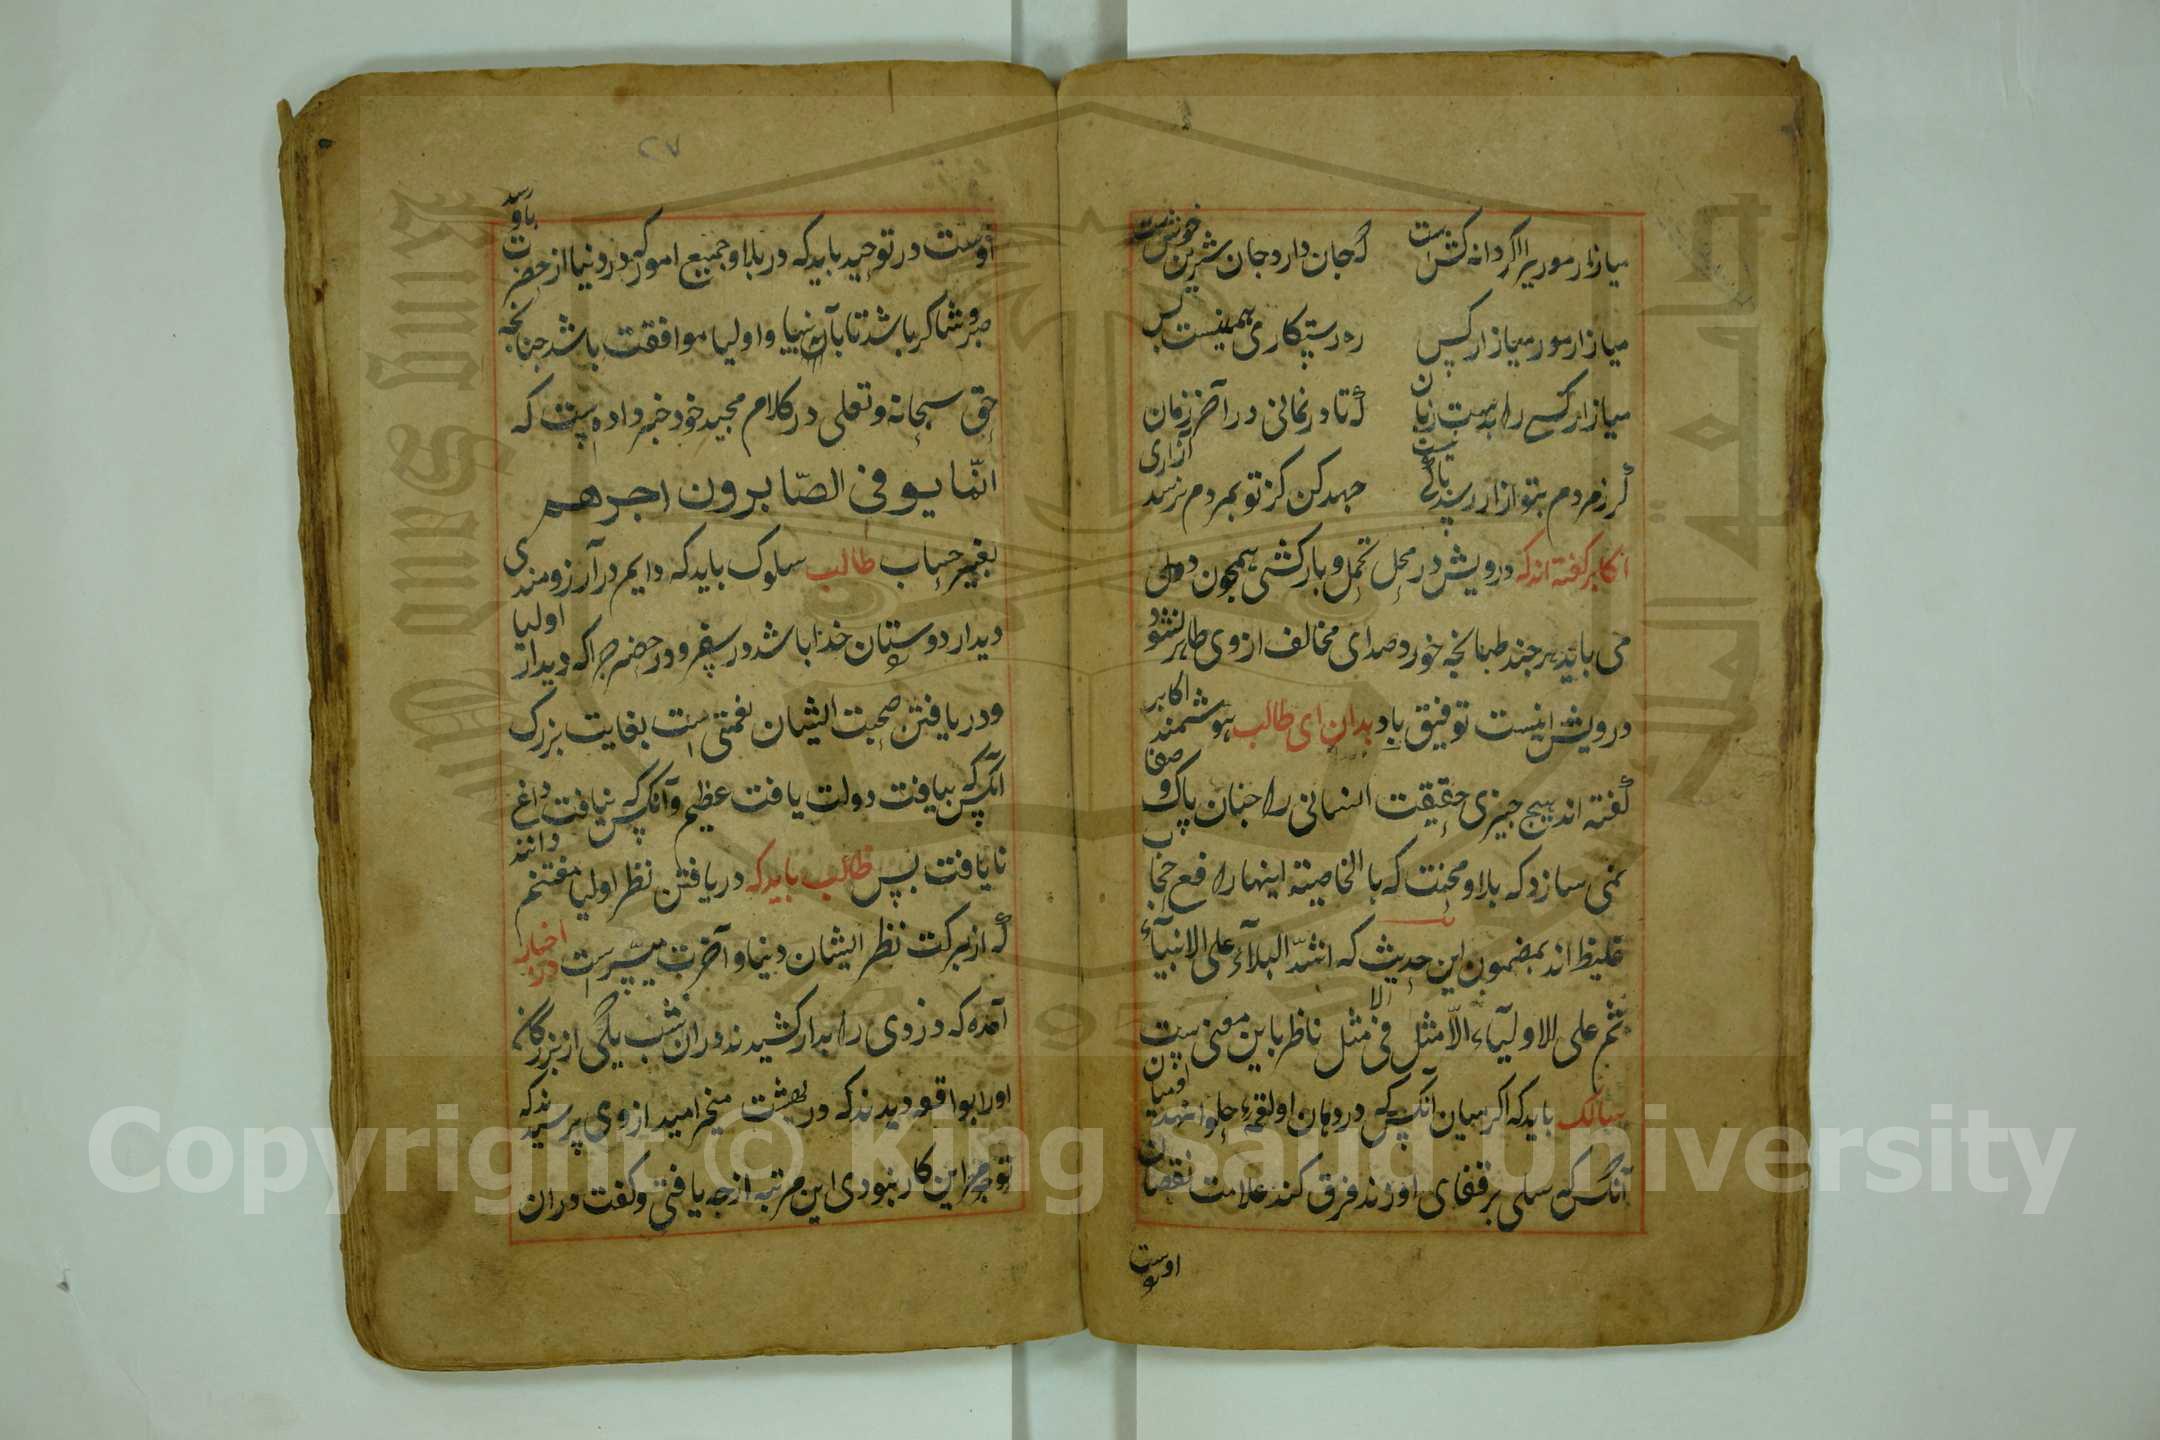 میازار موریرا اگر دانه کش است که جان دارد و جان شرین خوش است
میازار مور میازار کس ره رستکاری همینست بس
میازار کسی را بدست زبان که تا در نمانی در آخر زمان
گر ز مردم بتو آزار رسد باکی نیست جهد کن کز تو بمردم نرسد آزاری
اکابر گفته اند که درویش در محل تحمل و بارکشی همچون دف
می باید هر چند طبانچه خورد صدای مخالف از وی ظاهر نشود
درویش اینست توفیق باد بدان ای طالب هوشمند اکابر
گفته اند هیچ چیزی حقیقت انسانی را چنان پاک و صفا
نمی سازد که بلا و محنت که بالخاصیته اینها رافع حجاب
غلیظ اند بمضمون این حدیث که اشدّ البلآء علی الانبیآء
ثم علی الاولیآء الّا مثل فی الا مثل ناظر باین معنی ست
سالک باید که اگر میان آنکس که در دهان او لقمهٔ حلوا نهد و میان
آنکس که سلی بر قفای او زند فرق کند علامت نقصان
اوست
۲۷
اوست در توحید باید که در بلا و جمیع امور که در دنیا از حضرت باو رسد
صبر و شاکر باشد تا بآن انبیا و اولیا موافقت باشد چنانچه
حق سبحانه و تعلی در کلام مجید خود خبر داده است که
انّما یوفی الصّابرون اجرهم
بغیر حساب طالب سلوک باید که دایم در آرزومندی
دیدار دوستان خدا باشد در سفر و در حضر چرا که دیدار اولیا
و دریافتن صحبت ایشان نعمتی است بغایت بزرک
آنکس که بیافت دولت یافت عظیم و آنکس که نیافت داغ
نایافت پس طالب باید که دریافتن نظر اولیا مغتنم دانند
که از برکت نظر ایشان دنیا و آخرت میسّر است در اخبار
آمده که دزدی را بدار کشیدند در ان شب یکی از بزرگان
او را بواقعه دیدند که در بهشت میخرامید از وی پرسیدند که
تو جز این کار نبودی این مرتبه از چه یافتی و کفت در ان
Copyright © King Saud University